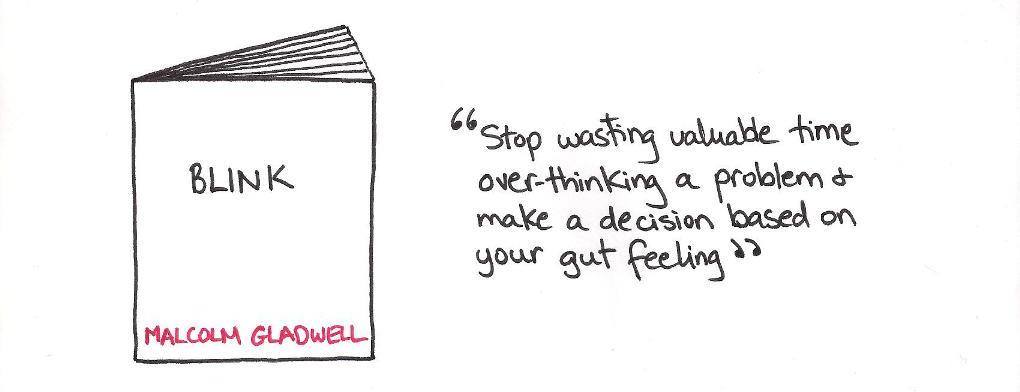 BLINK
MALCOLM GLADWELL
“Stop wasting valuable time
over-thinking a problem &
make a decision based on
your gut feeling”